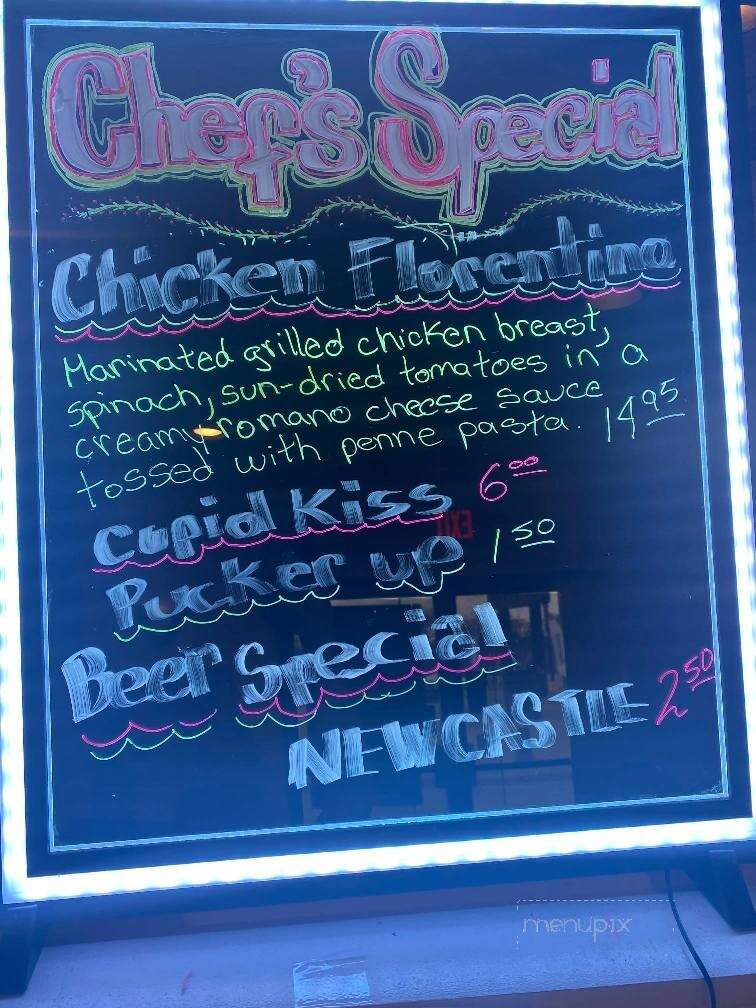 Chef's Special
Chicken Florentine
Marinated grilled chicken breast,
spinach, sun-dried tomatoes in a
creamy romano cheese sauce
tossed with penne pasta. 14 95
Cupid Kiss 6 00
EXIT
Pucker up 1 50
Beer Special
NEWCASTLE 2 50
menupix